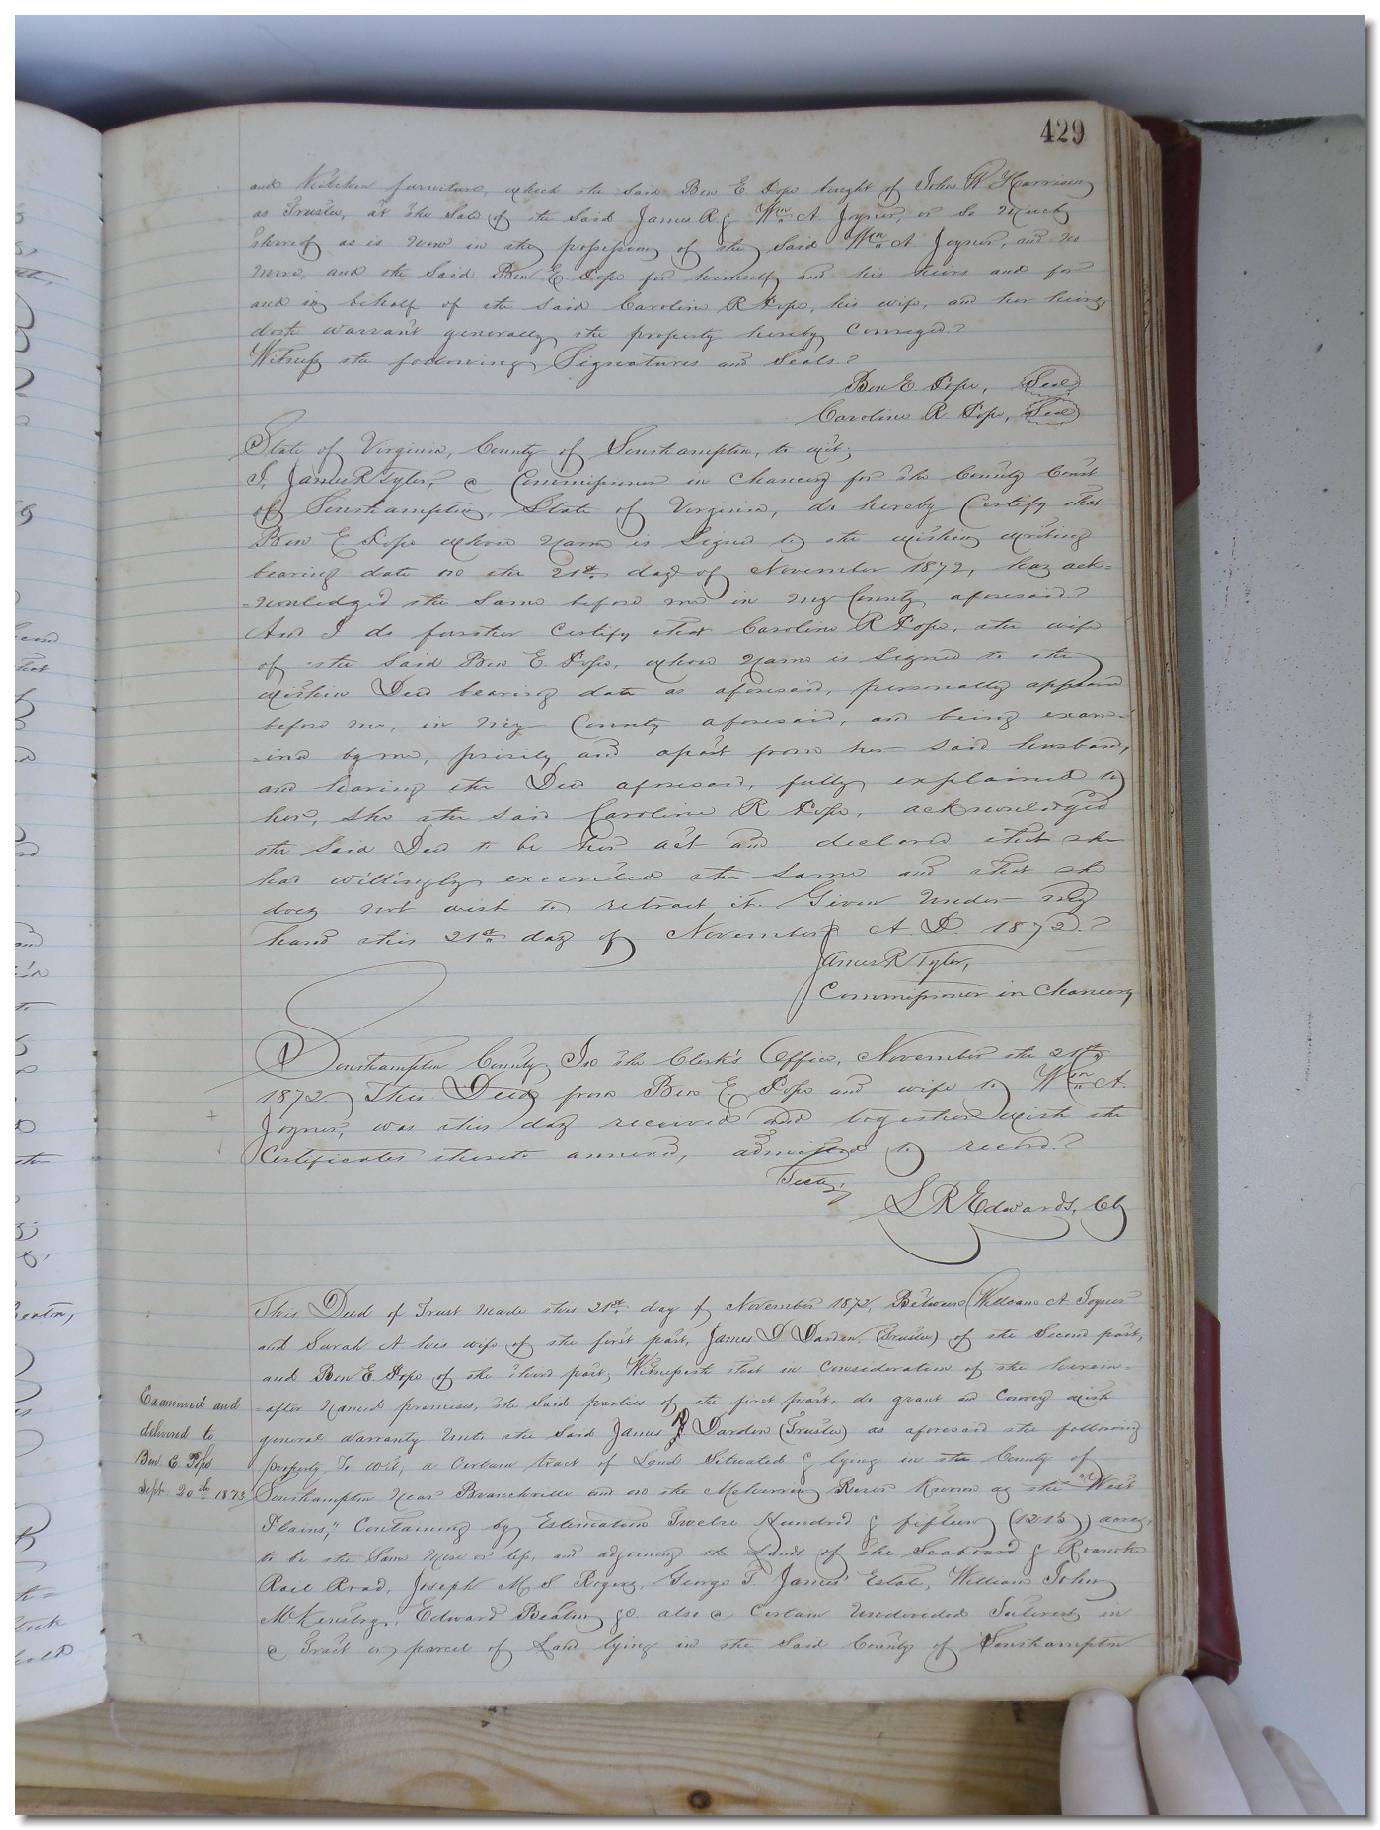 429
and Kitchen furniture, which the said Ben E Pope bought of John W Harrison
as Trustee, at the Sale of the said James R & Wm A Joyner, or so much
thereof as is now in the possession of the said Wm A Joyner, and no
more, and the said Ben E Pope for himself and his heirs and for
and in behalf of the said Caroline R Pope, his wife, and her heirs
doth warrant generally the property hereby conveyed.
Witness the following Signatures and Seals.
Ben E Pope, Seal
Caroline R Pope, Seal
State of Virginia, County of Southampton, to wit;
I, James R Tyler, a Commissioner in Chancery for the County Court
of Southampton, State of Virginia, do hereby Certify that
Ben E Pope whose name is signed to the within writing
bearing date on the 21st day of November 1872, has ack=
=nowledged the same before me in my County aforesaid.
And I do further certify that Caroline R Pope, the wife
of the said Ben E. Pope, whose name is signed to the
within Deed bearing date as aforesaid, personally appeared
before me, in my County aforesaid, and being exam-
-ined by me, privily and apart from her said husband,
and having the Deed aforesaid, fully explained to
her, she the said Caroline R Pope, acknowledged
the said Deed to be her act and declared that she
had willingly executed the same and that she
does not wish to retract it. Given under my
hand this 21st day of November A. D. 1872.
James R Tyler,
Commissioner in Chancery
Southampton County, In the Clerk's Office, November the
1872. This Deed from Ben E Pope and wife to Wm A.
Joyner, was this day received and together with the
Certificates thereto annexed, admitted to record.
Teste,
L R Edwards, Clk
This Deed of Trust made this 21st day of November 1872, Between William A Joyner
and Sarah A his wife of the first part, James D Darden, (Trustee) of the Second part,
and Ben E Pope of the third part, Witnesseth that in Consideration of the herein=
=after named premises, the said parties of the first part, do grant and Convey with
general warranty unto the said James D Darden (Trustee) as aforesaid the following
property, To wit, a Certain tract of Land Situated & lying in the County of
Southampton near Branchville and on the Meherrin River Known as the "West
Plains," Containing by Estimation Twelve Hundred & fifteen (1215) acres,
to be the same more or less, and adjoining the Lands of the Seaboard & Roanoke
Rail Road, Joseph M. S Rogers, George T. James' Estate, William John
Edward Beaton &c. also a Certain undivided Interest in
a Tract or parcel of Land lying in the said County of Southampton
Examined and
delivered to
Ben E. Pope
Sept 20th 1873